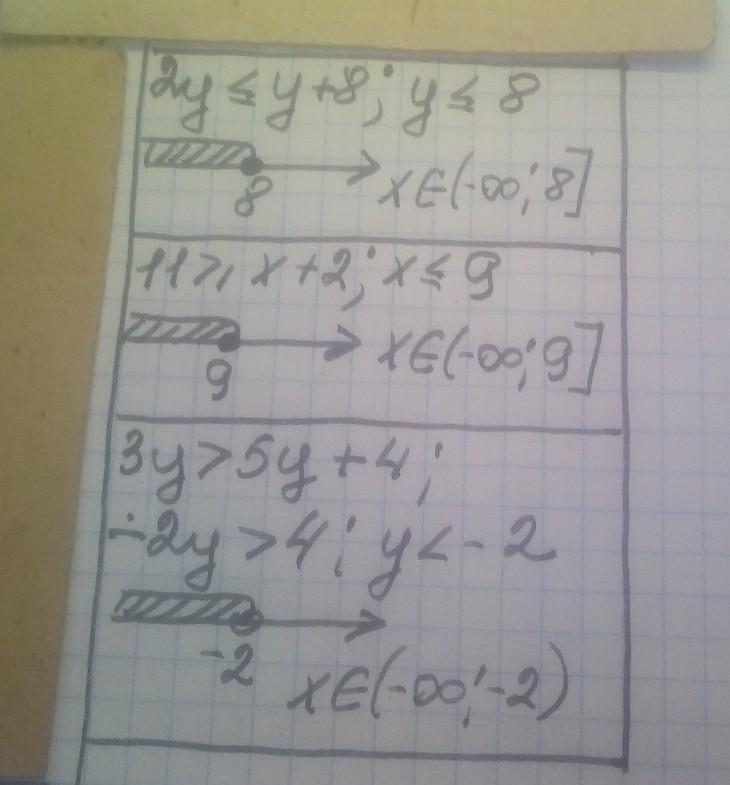 2y ≤ y+8; y ≤ 8
8
x∈(-∞; 8]
11 ⩾ x+2; x ≤ 9
9
x∈(-∞; 9]
3y > 5y + 4;
-2y > 4; y < - 2
-2
x∈(-∞; -2)